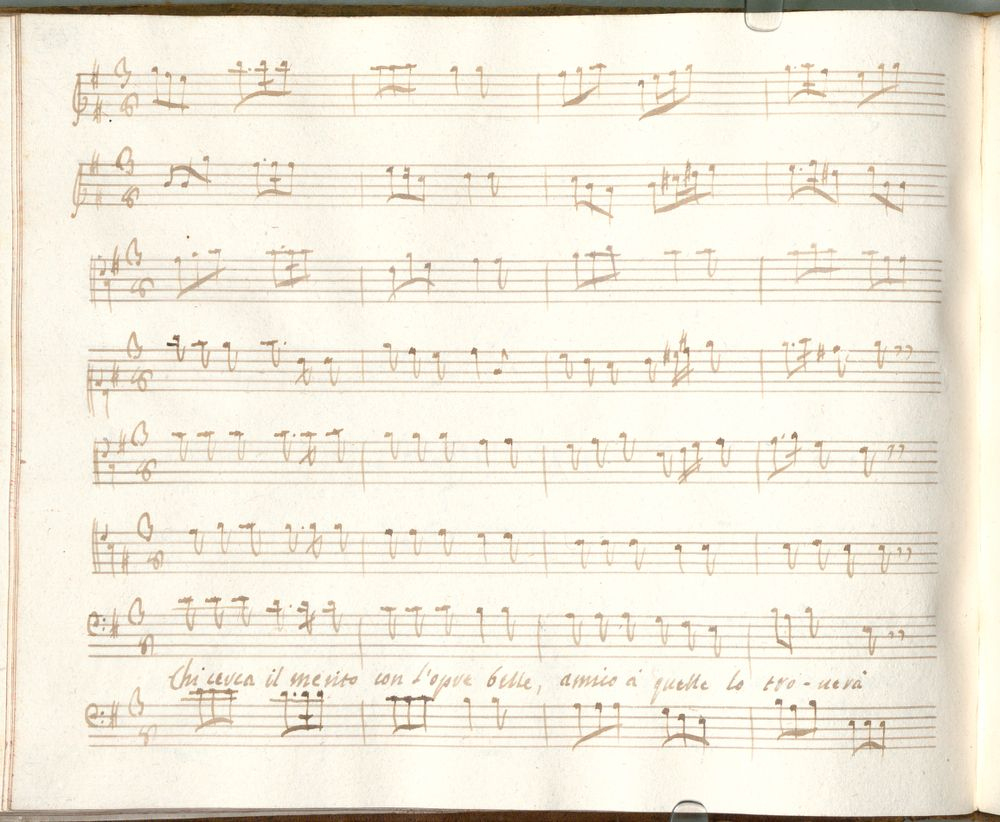 Chi cerca il merito con l'opre belle, amico à quelle lo tro-uerà